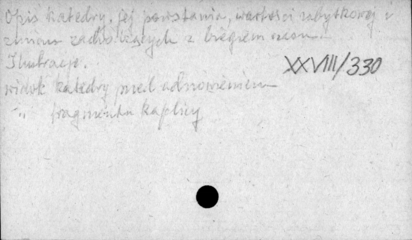 Opis katedry, jej powstania, wartości zabytkowej i
zmian zaobserwowanych z biegiem czasu.
Ilustracje.
XXVIII/330
widok katedry przed odnowieniem
" fragmentu kaplicy